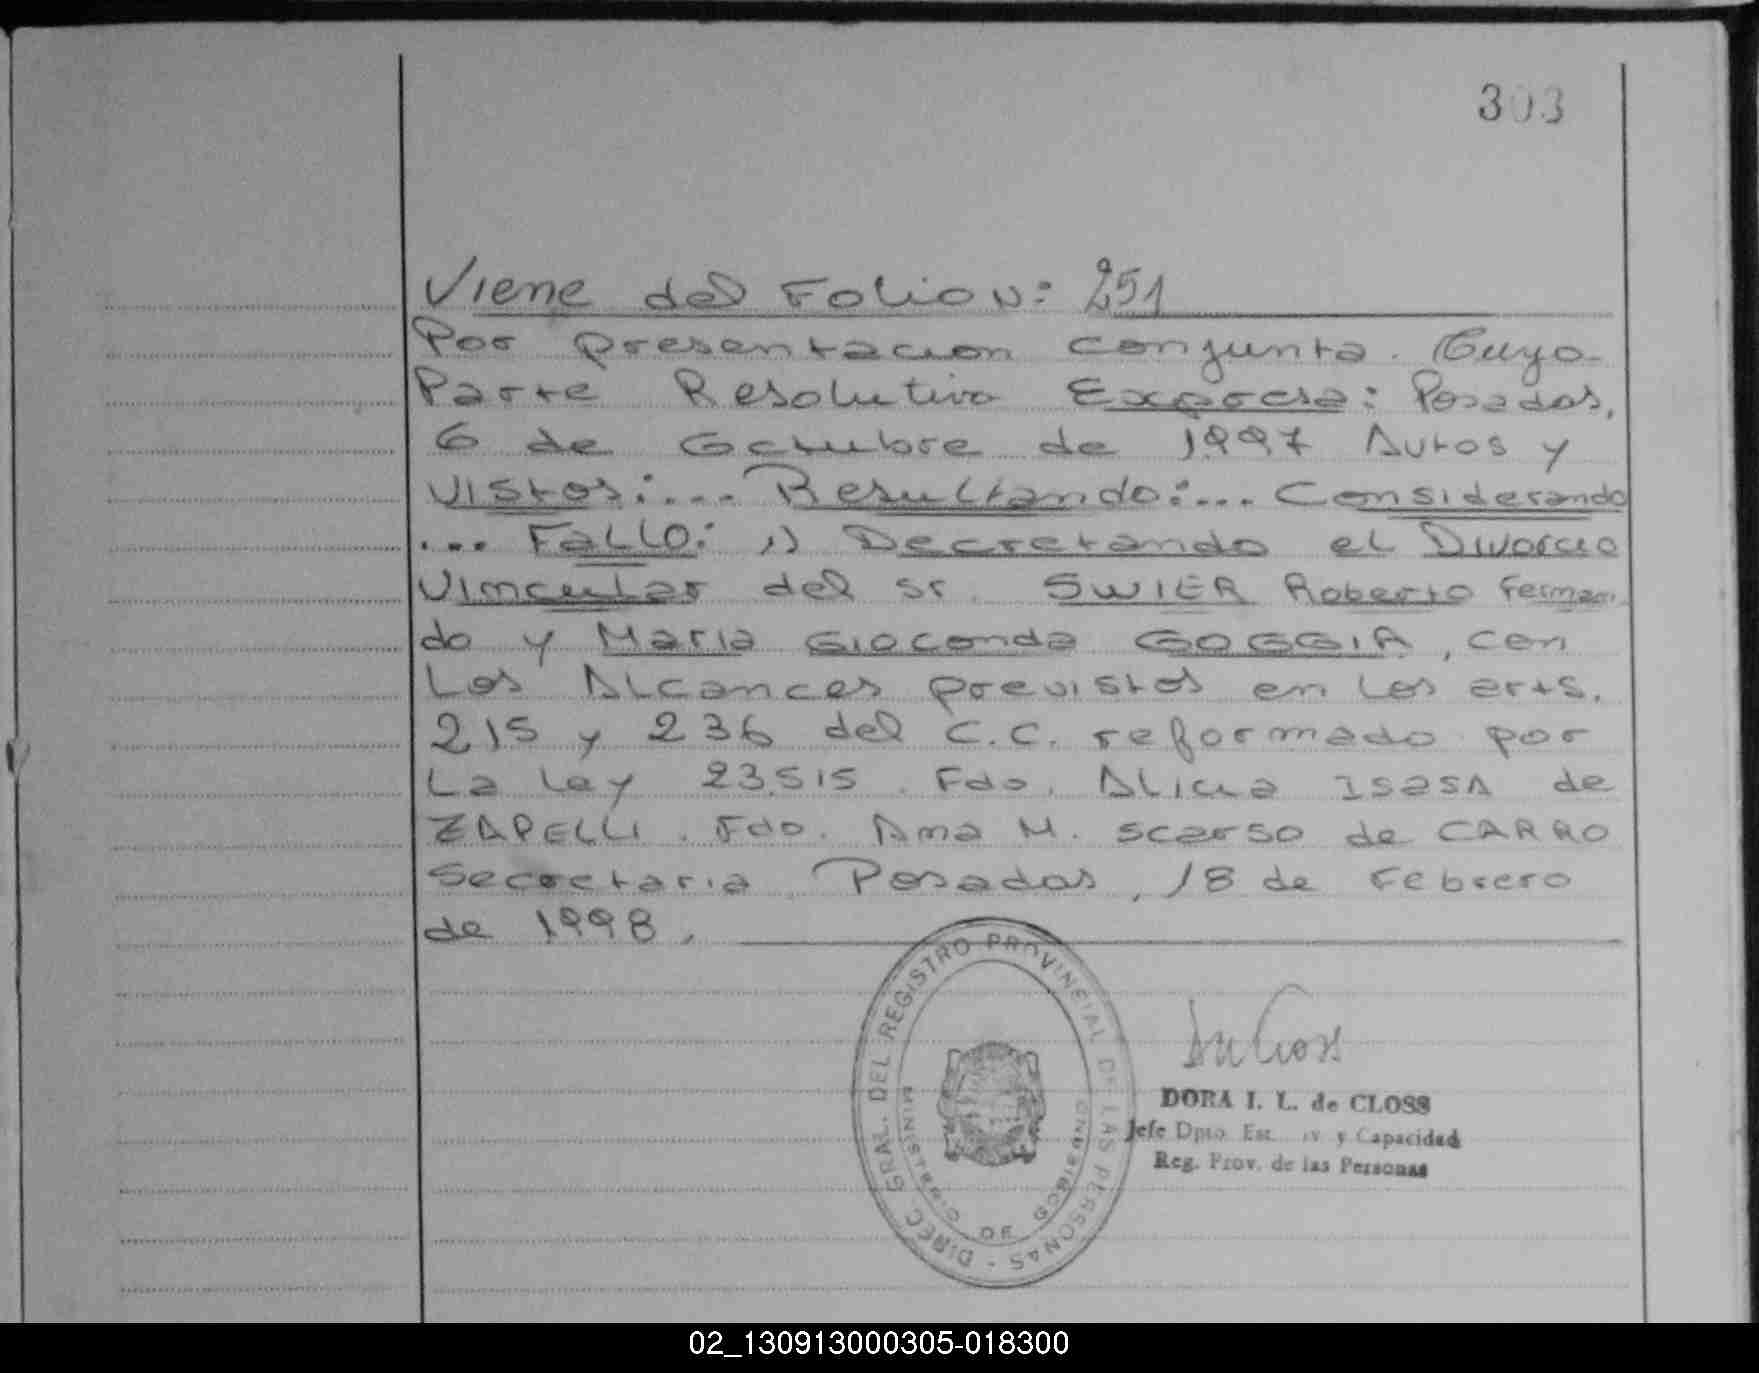 303
Viene del Folio N: 251
Por presentacion conjunta. Cuyo-
Parte Resolutiva Expresa: Posadas,
6 de Octubre de 1997 Autos y
Vistos:... Resultando:... Considerando
... Fallo: 1) Decretando el Divorcio
Vincular del sr. SWIER Roberto Fernan-
do y Maria Gioconda GOGGIA, con
Los Alcances previstos en los arts.
215 y 236 del C.C. reformado por
La ley 23.515. Fdo. Alicia Isasa de
ZAPELLI. Fdo. Ana M. Scarso de CARRO
Secretaria. Posadas, 18 de Febrero
de 1998.
DIREC. GRAL. DEL REGISTRO PROVINCIAL DE LAS PERSONAS -
MINISTERIO DE GOBIERNO
DORA I. L. de CLOSS
Jefe Dpto. Est. y Capacidad
Reg. Prov. de las Personas
02_130913000305-018300